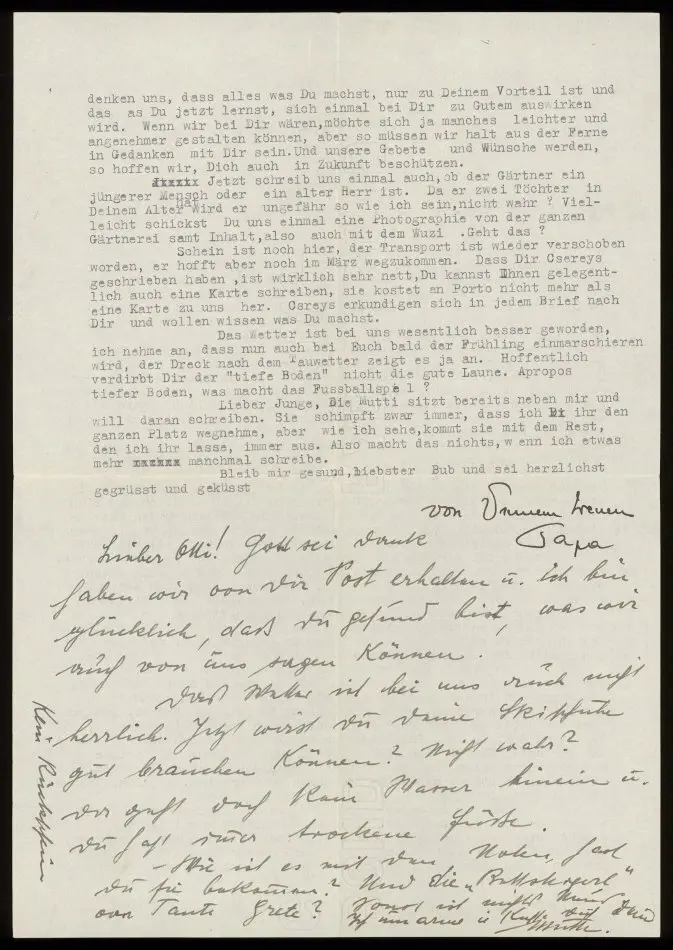 denken uns, dass alles was Du machst, nur zu Deinem Vorteil ist und
das as Du jetzt lernst, sich einmal bei Dir zu Gutem auswirken
wird. Wenn wir bei Dir wären,möchte sich ja manches leichter und
angenehmer gestalten können, aber so müssen wir halt aus der Ferne
in Gedanken mit Dir sein.Und unsere Gebete und Wünsche werden,
so hoffen wir, Dich auch in Zukunft beschützen.
Jetzt schreib uns einmal auch,ob der Gärtner ein
jüngerer Mensch oder ein alter Herr ist. Da er zwei Töchter in
Deinem Alter hat wird er ungefähr so wie ich sein,nicht wahr ? Viel-
leicht schickst Du uns einmal eine Photographie von der ganzen
Gärtnerei samt Inhalt,also auch mit dem Wuzi .Geht das ?
Schein ist noch hier, der Transport ist wieder verschoben
worden, er hofft aber noch im März wegzukommen. Dass Dir Csereys
geschrieben haben ,ist wirklich sehr nett,Du kannst Ihnen gelegent-
lich auch eine Karte schreiben, sie kostet an Porto nicht mehr als
eine Karte zu uns her. Csreys erkundigen sich in jedem Brief nach
Dir und wollen wissen was Du machst.
Das Wetter ist bei uns wesentlich besser geworden,
ich nehme an, dass nun auch bei Euch bald der Frühling einmarschieren
wird, der Dreck nach dem Tauwetter zeigt es ja an. Hoffentlich
verdirbt Dir der "tiefe Boden" nicht die gute Laune. Apropos
tiefer Boden, was macht das Fussballspiel ?
Lieber Junge, Die Mutti sitzt bereits neben mir und
will daran schreiben. Sie schimpft zwar immer, dass ich ihr den
ganzen Platz wegnehme, aber wie ich sehe,kommt sie mit dem Rest,
den ich ihr lasse, immer aus. Also macht das nichts,wenn ich etwas
mehr manchmal schreibe.
Bleib mir gesund,liebster Bub und sei herzlichst
gegrüsst und geküsst
von Deinem treuen
Papa
Lieber Otti! Gott sei dank
haben wir von Dir Post erhalten u. ich bin
glücklich, daß du gesund bist, was wir
auch von uns sagen können.
Das Wetter ist bei uns auch nicht
herrlich. Jetzt wirst du deine Skischuhe
gut brauchen können? Nicht wahr?
da geht doch kein Wasser hinein u.
du hast immer trockene Füße.
- Wie ist es mit den Noten, hast
du sie bekommen? Und die
von Tante Grete? Sonst ist nichts Neues
Ich umarme u. Küsse Dich Deine
Mutti.
Kein Rückschein